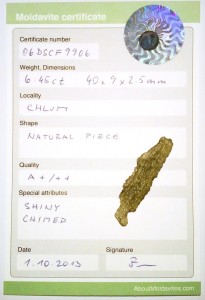 Moldavite certificate
Certificate number
06DSCF9906
Weight, Dimensions
6.45ct 40x9x2.5mm
Locality
CHLUM
Shape
NATURAL PIECE
Quality
A+/++
Special attributes
SHINY
CHIMED
Date
Signature
1.10.2013
AboutMoldavites.com